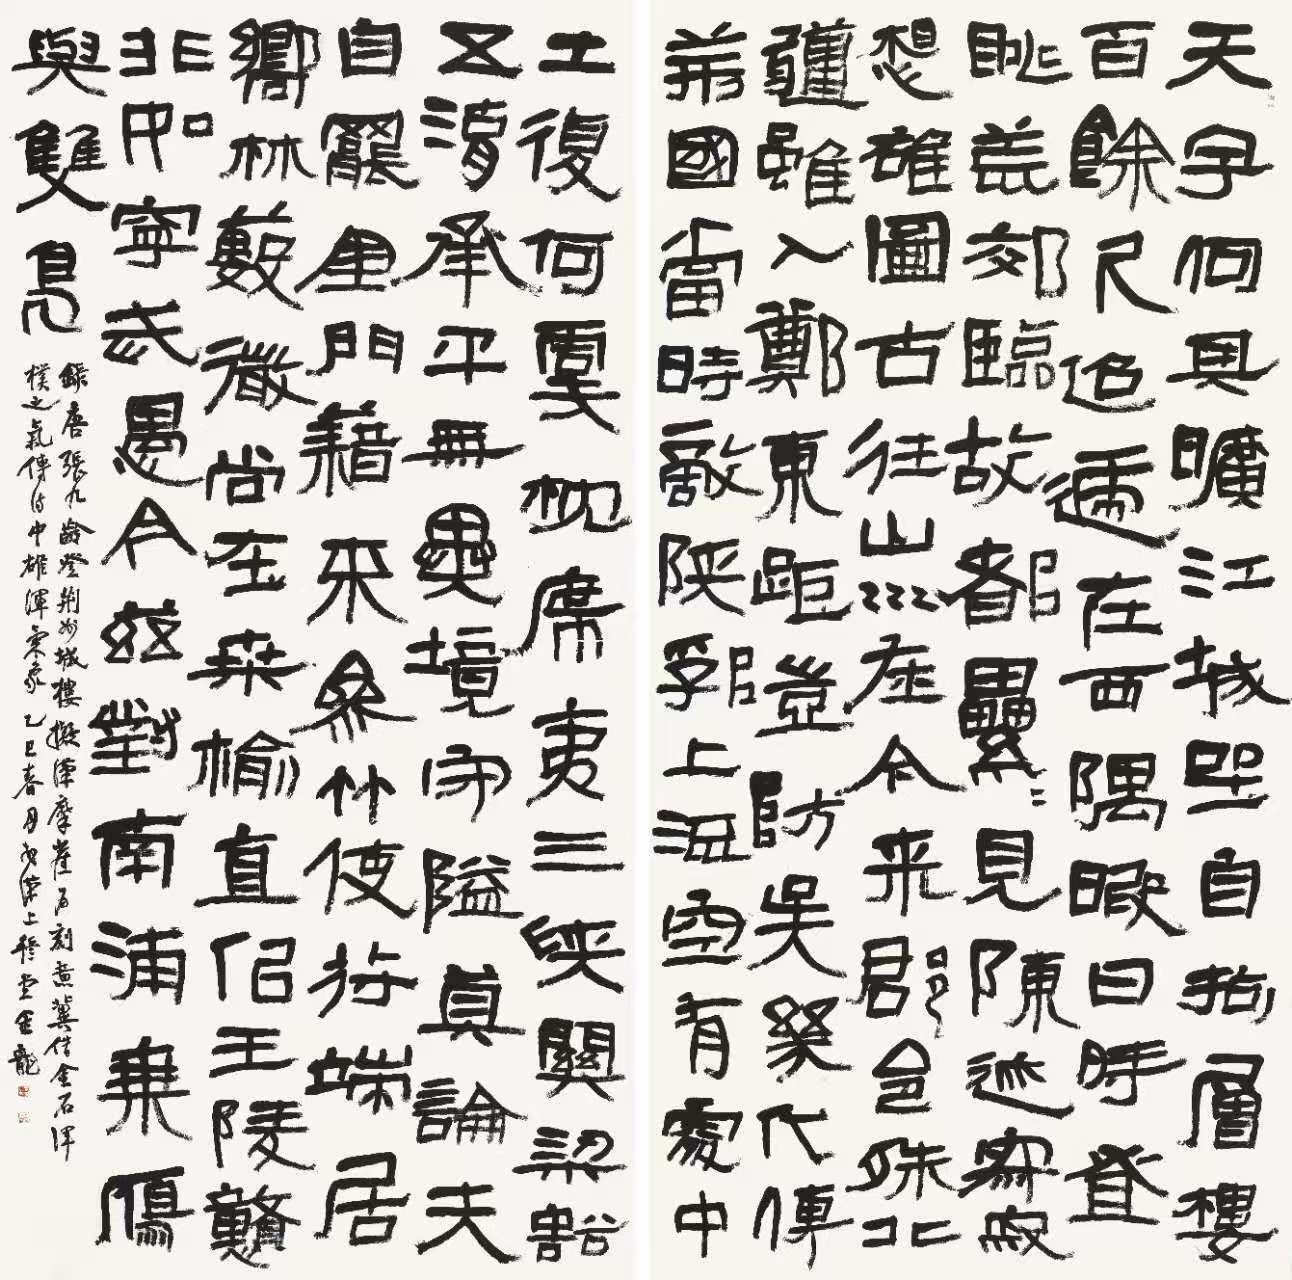 天宇何其曠江城坐自拘層樓
百餘尺迢遞在西隅暇日時登
眺荒郊臨故都壘〻見陳迹寂寂
想雄圖古往山川在今來郡邑殊北
疆雖入鄭東距豈防吳幾代傳
荊國當時敵陝郛上流空有處中
土復何虞枕席夷三峽關梁豁
五湖承平無異境守隘莫論夫
自罷金門籍來參竹使符端居
嚮林藪微尚在桑榆直佀王陵戇
非如寧武愚今兹對南浦乘鴈
與雙鳧
錄唐張九齡登荊州城樓擬漢摩崖石刻意冀借金石渾
樸之氣傳詩中雄渾氣象乙巳春月於上穆堂金龍